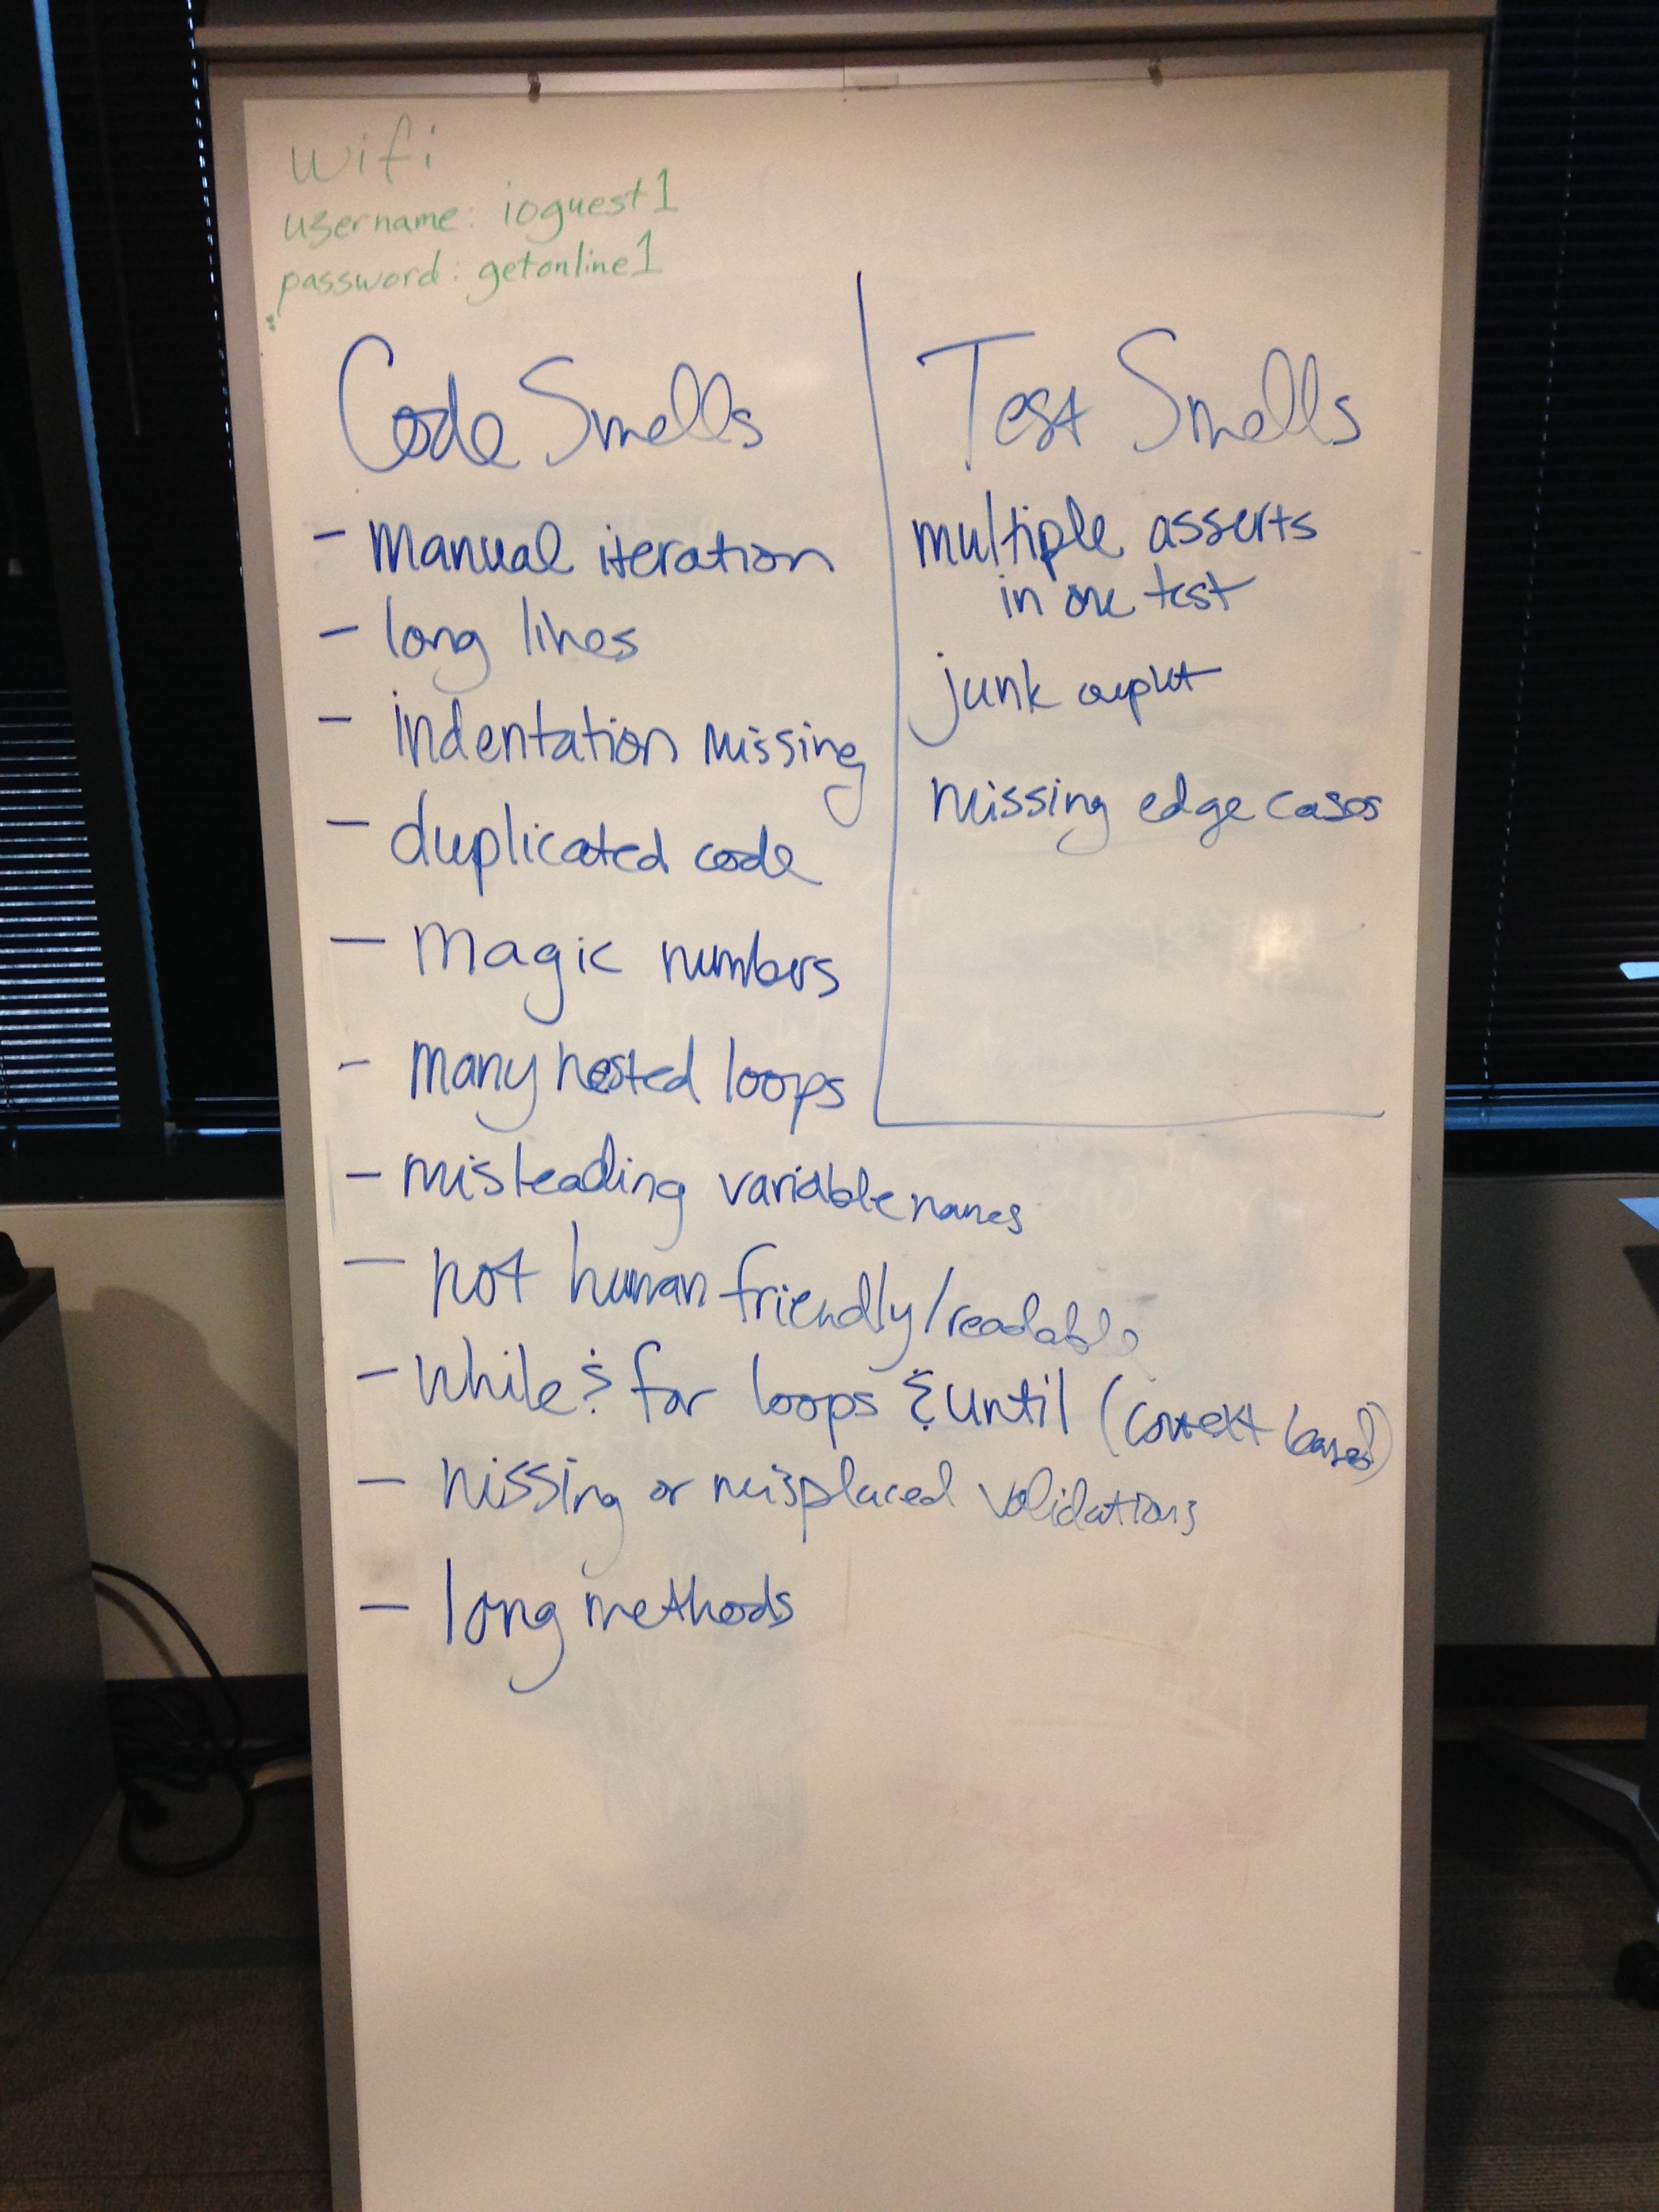 wifi
username: ioguest1
password: getonline1
Code Smells
- manual iteration
- long lines
- indentation missing
- duplicated code
- magic numbers
- many nested loops
- misleading variable names
- not human friendly/readable
- while & for loops & until (context based)
- missing or misplaced validations
- long methods
Test Smells
multiple asserts
in one test
junk ouput
missing edge cases